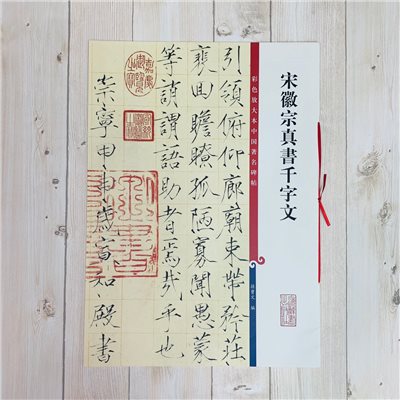 宋徽宗真書千字文
彩色放大本中国著名碑帖
孫寶文 編
引領俯仰廊廟束帶矜莊
裵回瞻眺孤陋寡聞愚蒙
等誚謂語助者焉哉乎也
崇寧甲申歲宣和殿書
嘉慶御覽之寶